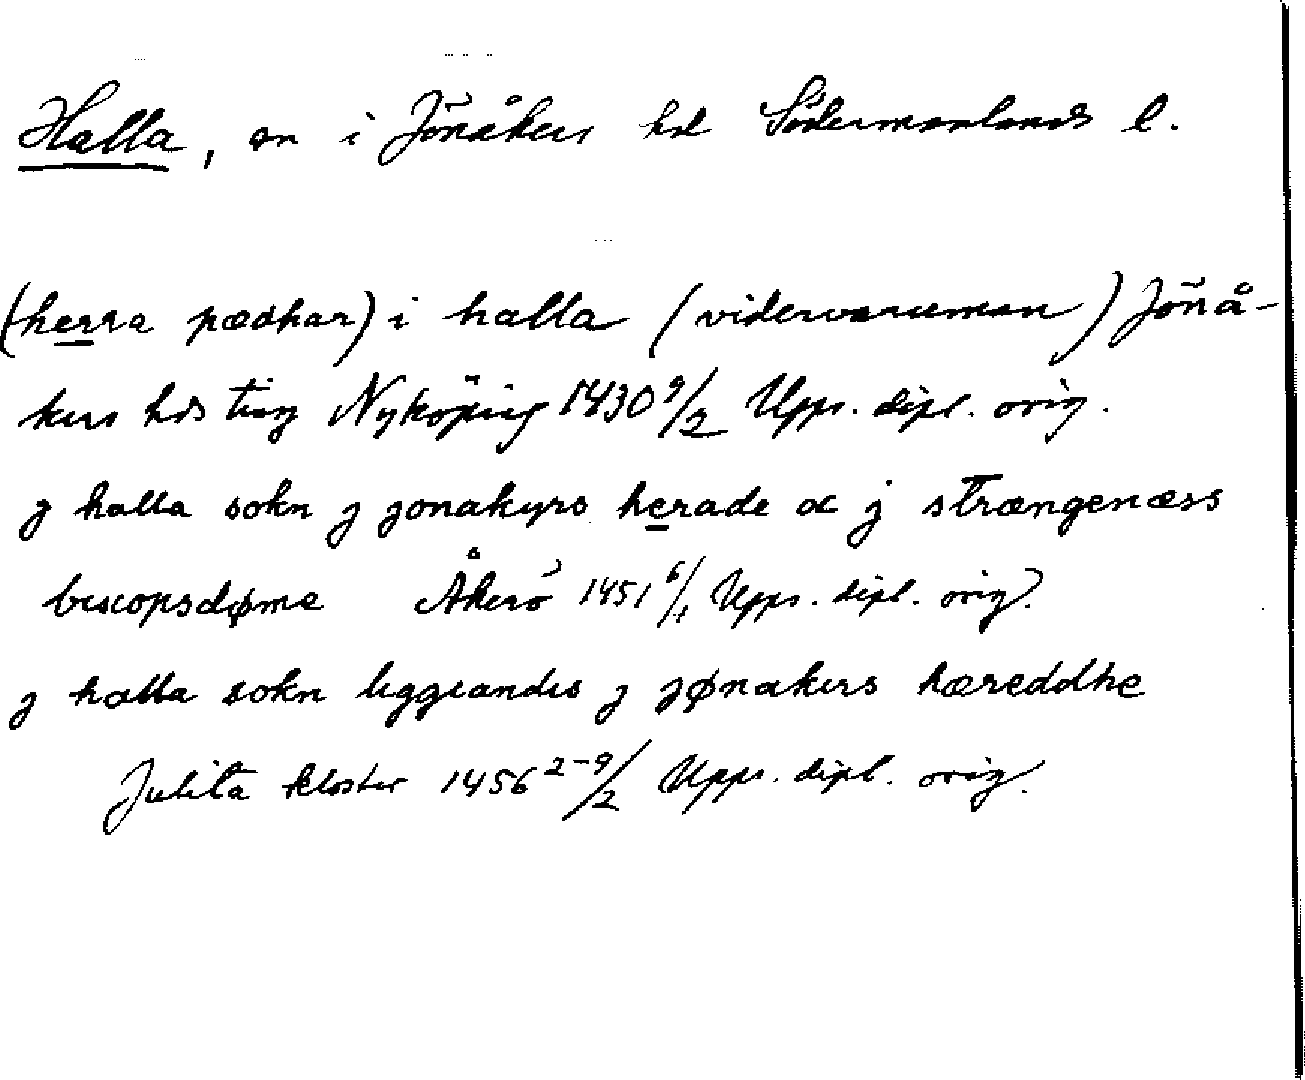 Halla, sn i Jönåkers hd Södermanlands l.
(herra pædhar) i halla (vidervaruman) Jönå-
kers hds ting Nyköping 1430 9/2 Upps. dipl. orig.
j halla sokn j jonakyrs herade oc j strængenæss
biscopsdøme Åkerö 1451 6/1 Upps. dipl. orig.
j halla sokn liggiandis j jønakers hæreddhe
Julita kloster 1456 2-9/2 Upps. dipl. orig.